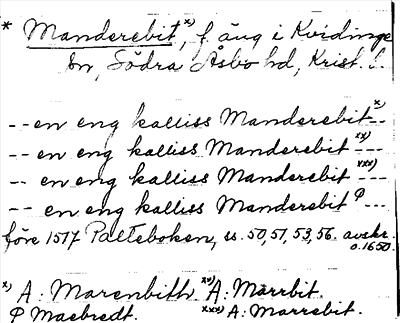 * Manderebit x), f. äng i Kvidinge
sn, Södra Åsbo hd, Krist. l.
-- en eng kalliss Manderebit x) --
-- en eng kalliss Manderebit xx) ---
-- en eng kalliss Manderebit xxx) ---
-- en eng kalliss Manderebit φ ---
före 1517 Palteboken, ss. 50, 51, 53, 56. avskr.
o. 1650.
x) A: Marenbith. xx) A: Marrbit.
φ Maebredt. xxx) A: Marrebit.